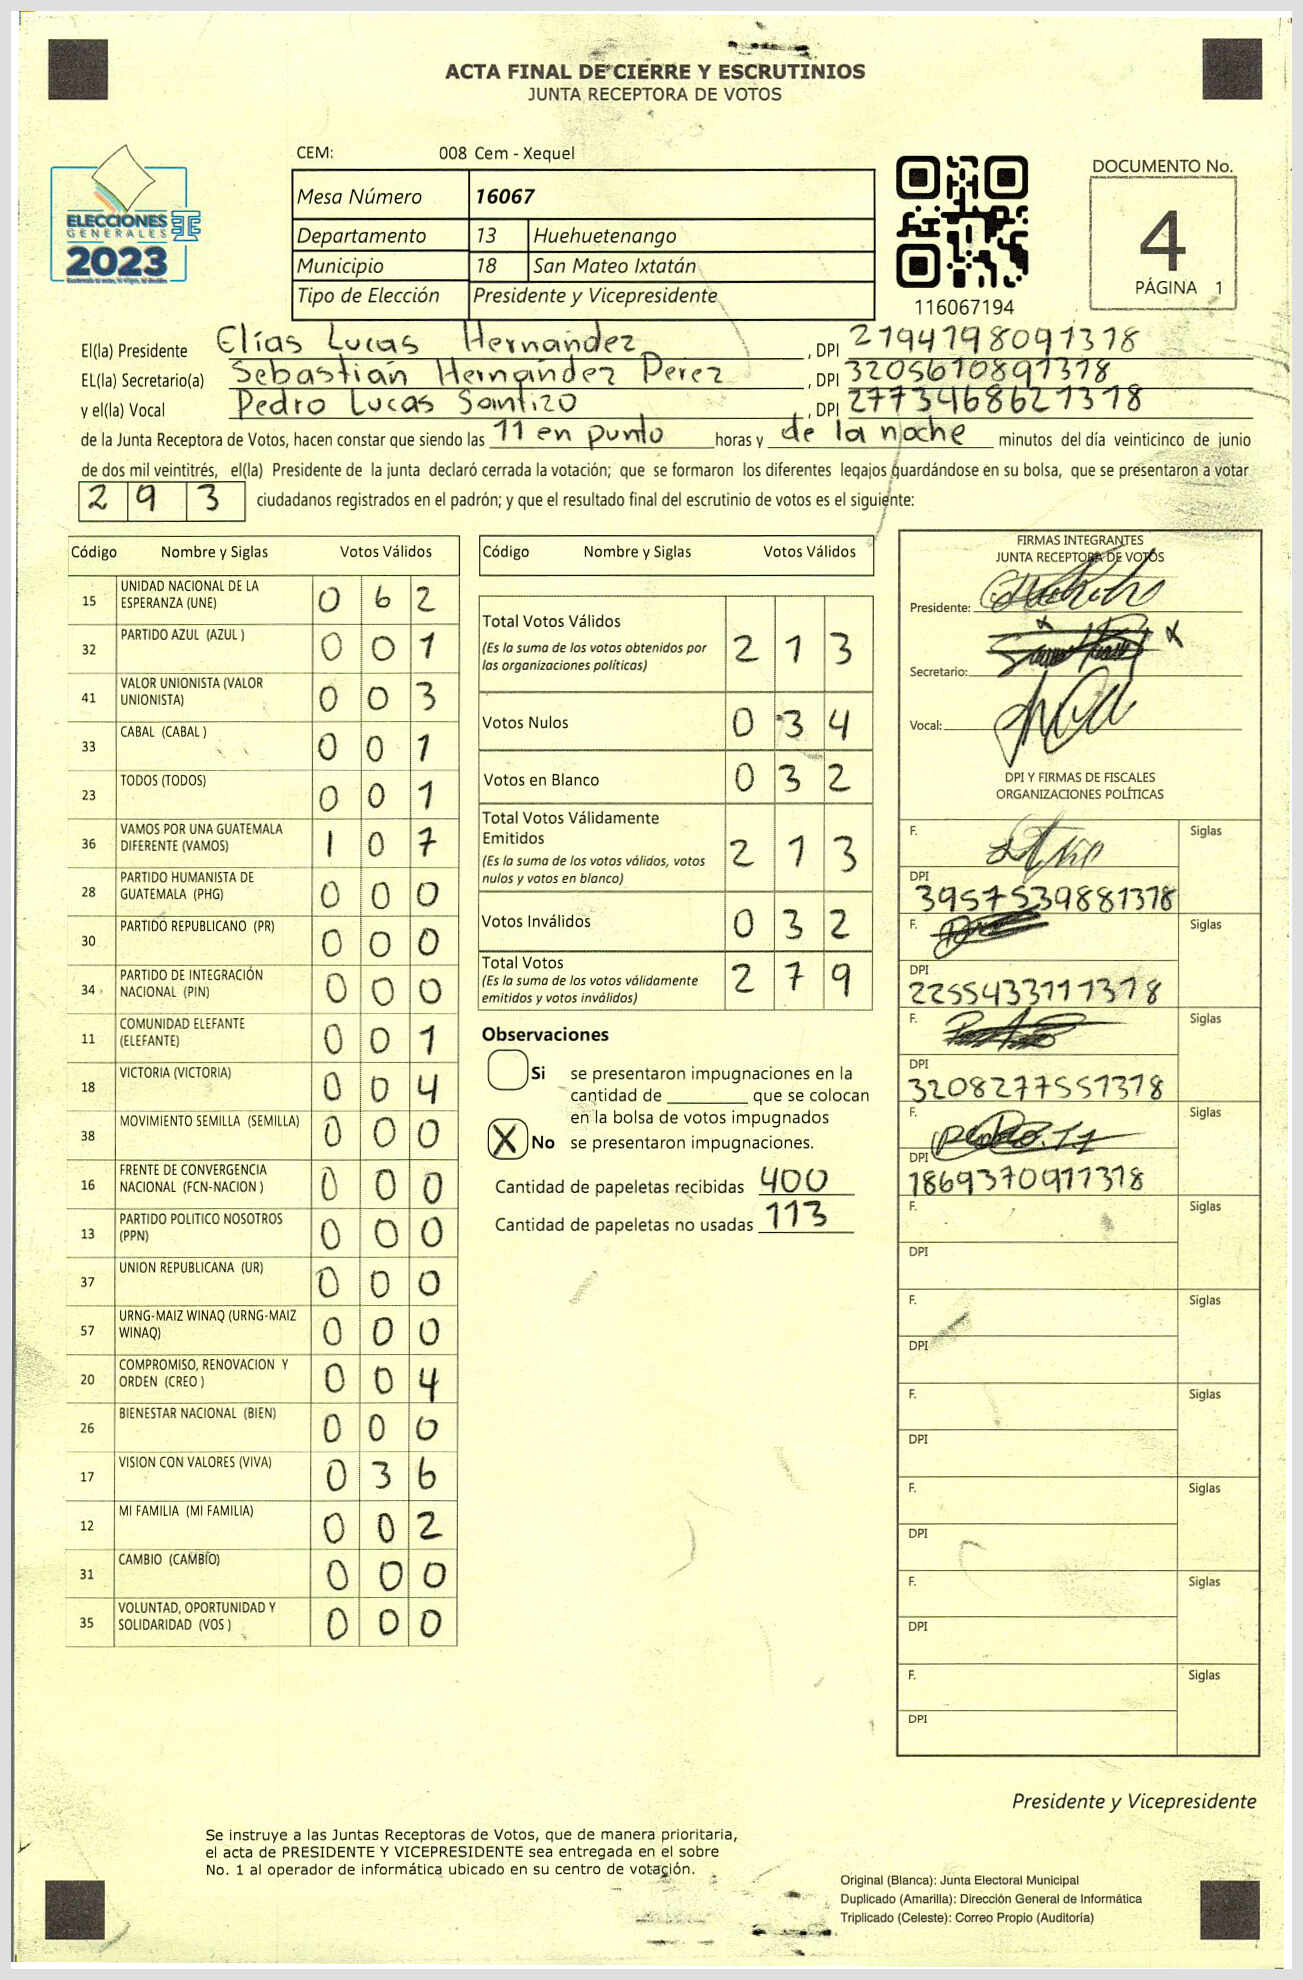 ACTA FINAL DE CIERRE Y ESCRUTINIOS
JUNTA RECEPTORA DE VOTOS
ELECCIONES
GENERALES
2023
CEM: 008 Cem - Xequel
Mesa Número 16067
Departamento 13 Huehuetenango
Municipio 18 San Mateo Ixtatán
Tipo de Elección Presidente y Vicepresidente
116067194
DOCUMENTO No.
4
PÁGINA 1
El(la) Presidente Elías Lucas Hernández, DPI 2794798091318
EL(la) Secretario(a) Sebastián Hernández Perez, DPI 3205610891318
y el(la) Vocal Pedro Lucas Santizo, DPI 2773468621318
de la Junta Receptora de Votos, hacen constar que siendo las 11 en punto horas y de la noche minutos del día veinticinco de junio
de dos mil veintitrés, el(la) Presidente de la junta declaró cerrada la votación; que se formaron los diferentes legajos guardándose en su bolsa, que se presentaron a votar
293 ciudadanos registrados en el padrón; y que el resultado final del escrutinio de votos es el siguiente:
Código Nombre y Siglas Votos Válidos
15 UNIDAD NACIONAL DE LA ESPERANZA (UNE) 0 6 2
32 PARTIDO AZUL (AZUL ) 0 0 1
41 VALOR UNIONISTA (VALOR UNIONISTA) 0 0 3
33 CABAL (CABAL ) 0 0 1
23 TODOS (TODOS) 0 0 1
36 VAMOS POR UNA GUATEMALA DIFERENTE (VAMOS) 1 0 7
28 PARTIDO HUMANISTA DE GUATEMALA (PHG) 0 0 0
30 PARTIDO REPUBLICANO (PR) 0 0 0
34 PARTIDO DE INTEGRACIÓN NACIONAL (PIN) 0 0 0
11 COMUNIDAD ELEFANTE (ELEFANTE) 0 0 1
18 VICTORIA (VICTORIA) 0 0 4
38 MOVIMIENTO SEMILLA (SEMILLA) 0 0 0
16 FRENTE DE CONVERGENCIA NACIONAL (FCN-NACION ) 0 0 0
13 PARTIDO POLITICO NOSOTROS (PPN) 0 0 0
37 UNION REPUBLICANA (UR) 0 0 0
57 URNG-MAIZ WINAQ (URNG-MAIZ WINAQ) 0 0 0
20 COMPROMISO, RENOVACION Y ORDEN (CREO ) 0 0 4
26 BIENESTAR NACIONAL (BIEN) 0 0 0
17 VISION CON VALORES (VIVA) 0 3 6
12 MI FAMILIA (MI FAMILIA) 0 0 2
31 CAMBIO (CAMBIO) 0 0 0
35 VOLUNTAD, OPORTUNIDAD Y SOLIDARIDAD (VOS ) 0 0 0
Código Nombre y Siglas Votos Válidos
Total Votos Válidos 2 1 3
(Es la suma de los votos obtenidos por
las organizaciones políticas)
Votos Nulos 0 3 4
Votos en Blanco 0 3 2
Total Votos Válidamente
Emitidos 2 1 3
(Es la suma de los votos válidos, votos
nulos y votos en blanco)
Votos Inválidos 0 3 2
Total Votos 2 7 9
(Es la suma de los votos válidamente
emitidos y votos inválidos)
Observaciones
Si se presentaron impugnaciones en la
cantidad de ________ que se colocan
en la bolsa de votos impugnados
X No se presentaron impugnaciones.
Cantidad de papeletas recibidas 400
Cantidad de papeletas no usadas 113
FIRMAS INTEGRANTES
JUNTA RECEPTORA DE VOTOS
Presidente:
Secretario:
Vocal:
DPI Y FIRMAS DE FISCALES
ORGANIZACIONES POLÍTICAS
F. Siglas
DPI 3957539881318
F. Siglas
DPI 2255433111318
F. Siglas
DPI 3208277551318
F. Siglas
DPI 1869370911318
F. Siglas
DPI
F. Siglas
DPI
F. Siglas
DPI
F. Siglas
DPI
F. Siglas
DPI
F. Siglas
DPI
Presidente y Vicepresidente
Se instruye a las Juntas Receptoras de Votos, que de manera prioritaria,
el acta de PRESIDENTE Y VICEPRESIDENTE sea entregada en el sobre
No. 1 al operador de informática ubicado en su centro de votación.
Original (Blanca): Junta Electoral Municipal
Duplicado (Amarilla): Dirección General de Informática
Triplicado (Celeste): Correo Propio (Auditoría)